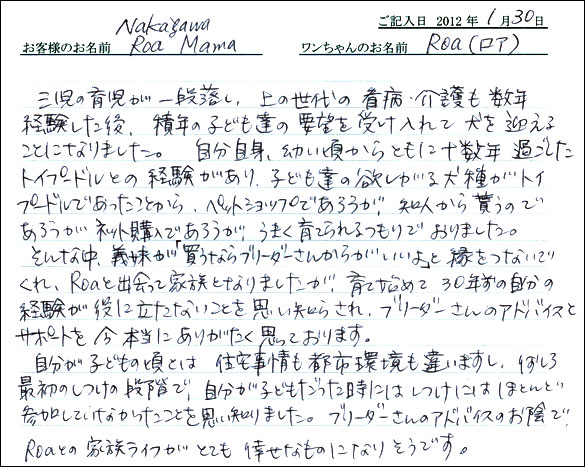 ご記入日 2012 年 1月30日
お客様のお名前 Nakagawa Roa Mama ワンちゃんのお名前 Roa(ロア)
三児の育児が一段落し、上の世代の看病・介護も数年
経験した後、積年の子ども達の要望を受け入れて犬を迎える
ことになりました。自分自身、幼い頃からともに十数年過ごした
トイプードルとの経験があり、子ども達の欲しがる犬種がトイ
プードルであったことから、ペットショップであろうが、知人から貰うので
あろうがネット購入であろうが、うまく育てられるつもりでおりました。
そんな中、義妹が「買うならブリーダーさんからがいいよ」と縁をつないで
くれ、Roaと出会って家族となりましたが、育て始めて30年前の自分の
経験が役に立たないことを思い知らされ、ブリーダーさんのアドバイスと
サポートを今本当にありがたく思っております。
自分が子どもの頃とは住宅事情も都市環境も違いますし、むしろ
最初のしつけの段階で、自分が子どもだった時にはしつけにはほとんど
参加していなかったことを思い知りました。ブリーダーさんのアドバイスのお陰で、
Roaとの家族ライフがとても幸せなものになりそうです。